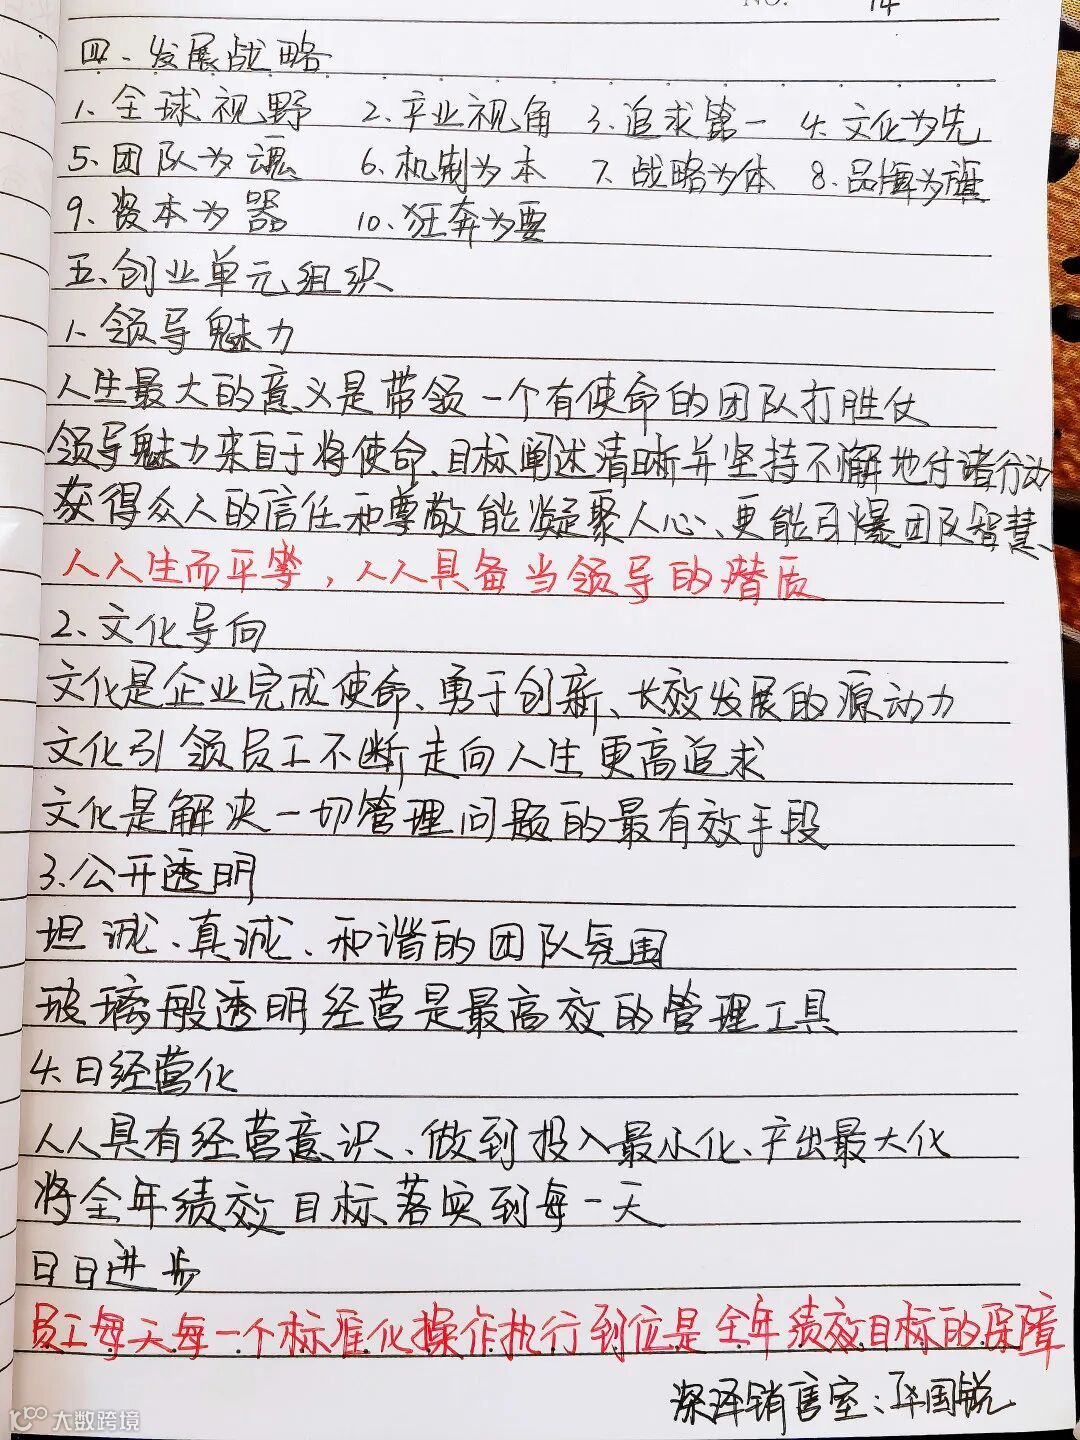 NO. 14
四、发展战略
1、全球视野 2、产业视角 3、追求第一 4、文化为先
5、团队为魂 6、机制为本 7、战略为体 8、品牌为旗
9、资本为器 10、狂奔为要
五、创业单元组织
1、领导魅力
人生最大的意义是带领一个有使命的团队打胜仗
领导魅力来自于将使命、目标阐述清晰并坚持不懈地付诸行动
获得众人的信任和尊敬能凝聚人心、更能引爆团队智慧、
人人生而平等,人人具备当领导的潜质
2、文化导向
文化是企业完成使命、勇于创新、长效发展的源动力
文化引领员工不断走向人生更高追求
文化是解决一切管理问题的最有效手段
3.公开透明
坦诚、真诚、和谐的团队氛围
玻璃般透明经营是最高效的管理工具
4、日经营化
人人具有经营意识、做到投入最小化、产出最大化
将全年绩效目标落实到每一天
日日进步
员工每天每一个标准化操作执行到位是全年绩效目标的保障
深泽销售室:国锐
大数跨境